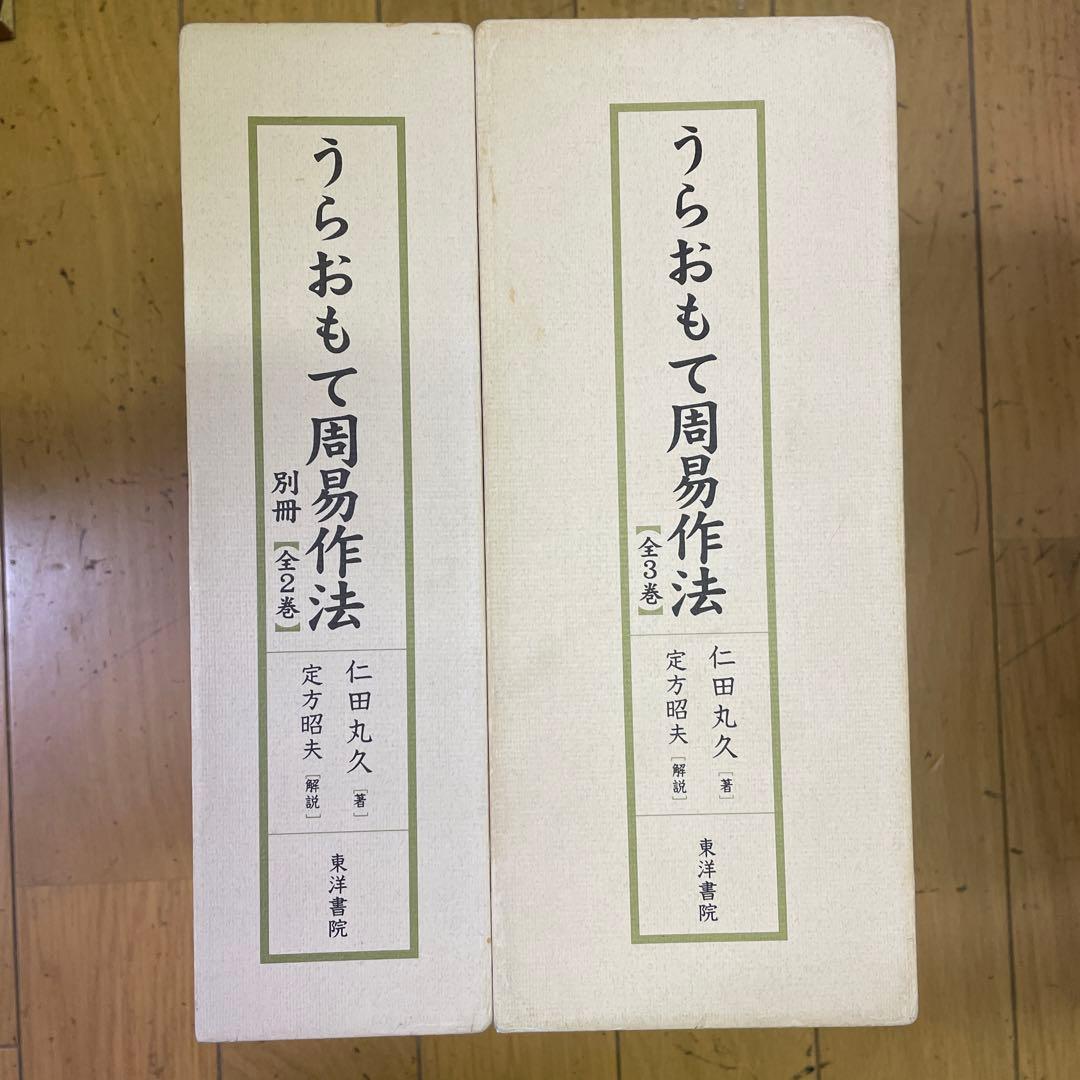 うらおもて周易作法
【全3巻】
仁田丸久[著]
定方昭夫[解説]
東洋書院
うらおもて周易作法
別冊【全2巻】
仁田丸久[著]
定方昭夫[解説]
東洋書院